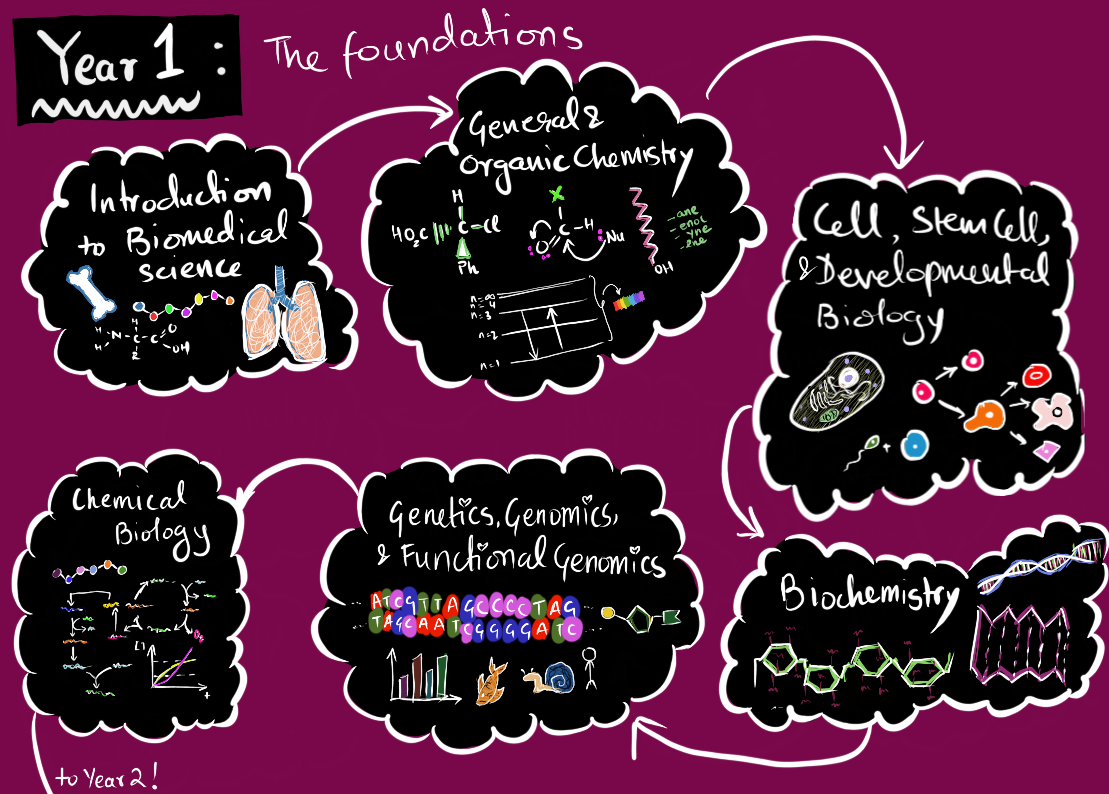 Year 1 :
The foundations
Introduction
to Biomedical
science
H
H
N
C
C
O
OH
H
General &
Organic Chemistry
H
HO₂C C Cl
Ph
X
C H
O
:Nu
OH
-ane
-enol
-yne
-ene
n=∞
n=4
n=3
n=2
n=1
Cell, Stem Cell,
& Developmental
Biology
+
Biochemistry
Genetics, Genomics,
& Functional Genomics
ATCGTTAGCCCCTAG
TAGCAATCGGGGATC
Chemical
Biology
[]
t
to Year 2!